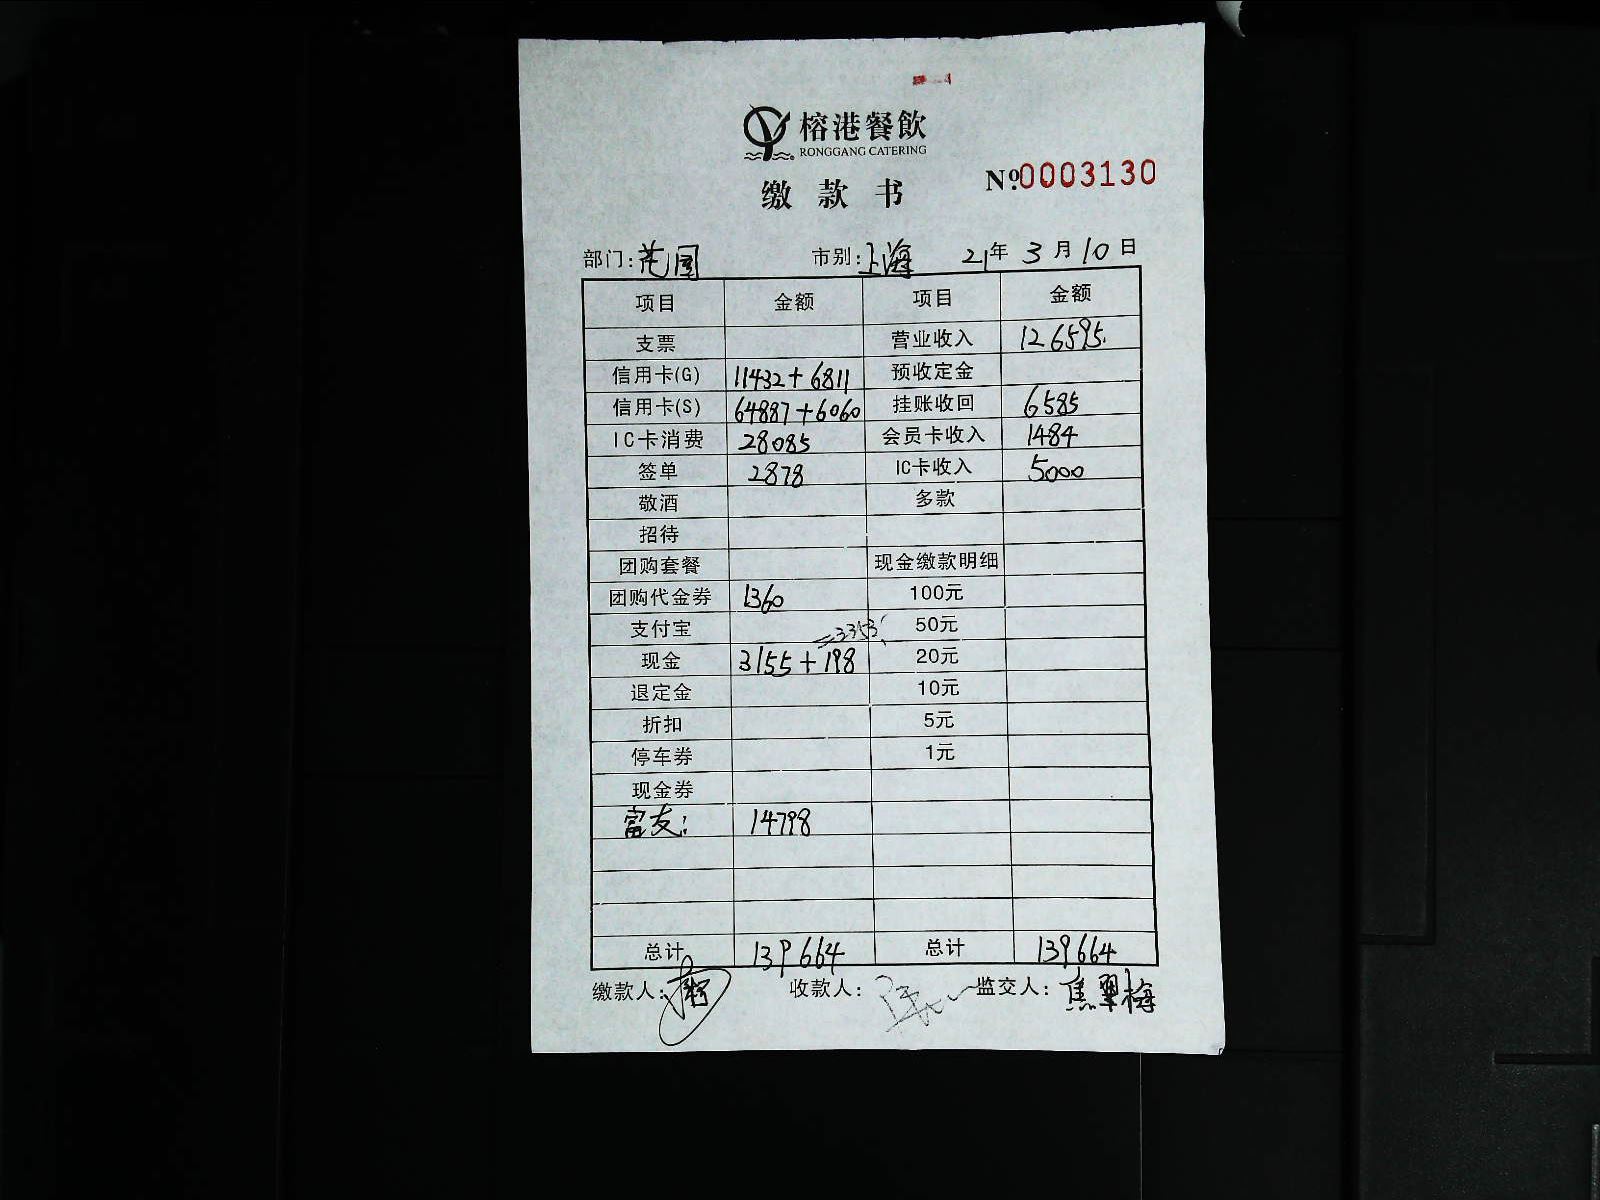 榕港餐飲
RONGGANG CATERING
缴款书
№0003130
部门: 市别:上海 21年3月10日
项目 金额 项目 金额
支票 营业收入 126595.
信用卡(G) 11432+6811 预收定金
信用卡(S) 64887+6060 挂账收回 6585
IC卡消费 28085 会员卡收入 1484
签单 2878 IC卡收入 5000
敬酒 多款
招待
团购套餐 现金缴款明细
团购代金券 1360 100元
支付宝 50元
=3353
现金 3155+198 20元
退定金 10元
折扣 5元
停车券 1元
现金券
富友: 14798
总计 139664 总计 139664
缴款人: 收款人: 监交人:焦翠梅